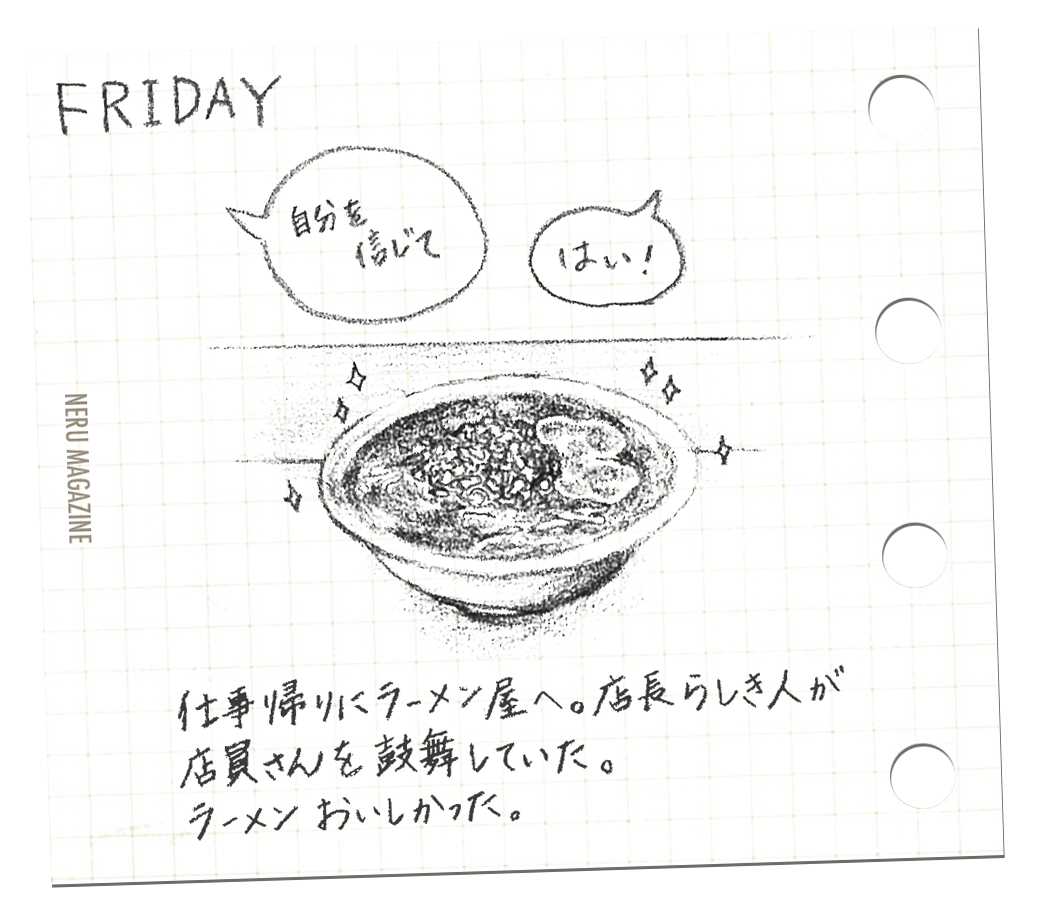 FRIDAY
自分を
信じて
はい!
NERU MAGAZINE
仕事帰りにラーメン屋へ。店長らしき人が
店員さんを鼓舞していた。
ラーメンおいしかった。